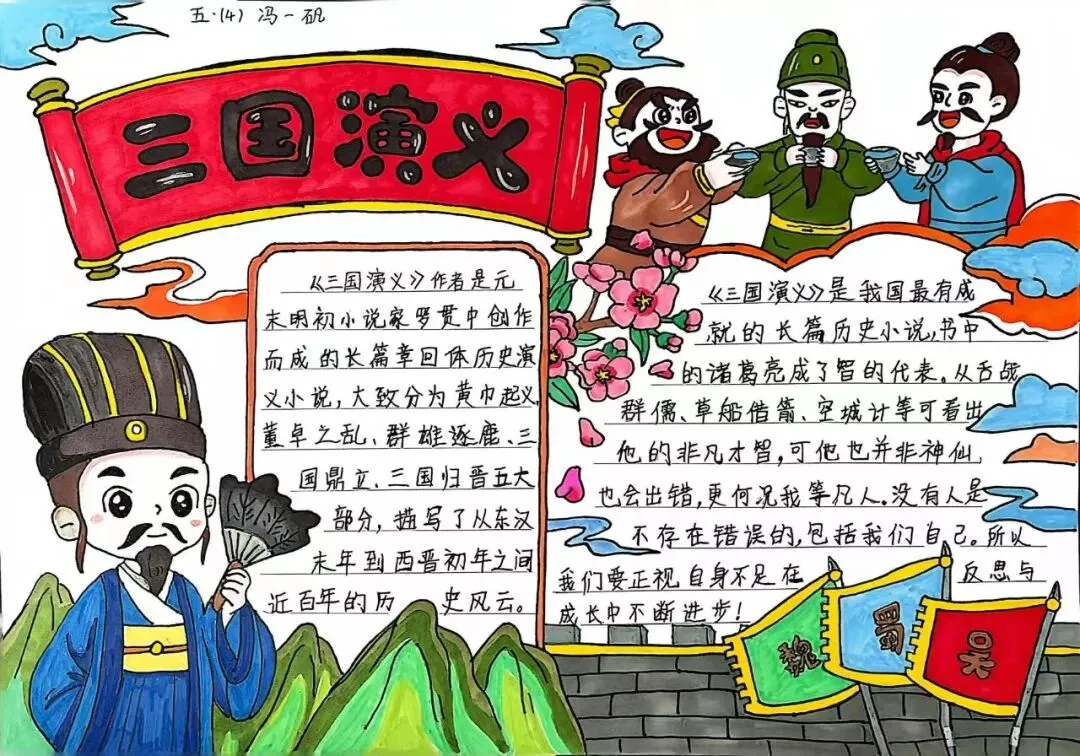 五.(4) 冯一矾
三国演义
《三国演义》作者是元
末明初小说家罗贯中创作
而成的长篇章回体历史演
义小说,大致分为黄巾起义、
董卓之乱、群雄逐鹿、三
国鼎立、三国归晋五大
部分,描写了从东汉
末年到西晋初年之间
近百年的历 史风云。
《三国演义》是我国最有成
就的长篇历史小说,书中
的诸葛亮成了智的代表。从舌战
群儒、草船借箭、空城计等可看出
他的非凡才智,可他也并非神仙
也会出错,更何况我等凡人。没有人是
不存在错误的,包括我们自己。所以
我们要正视自身不足在 反思与
成长中不断进步!
魏
蜀
吴